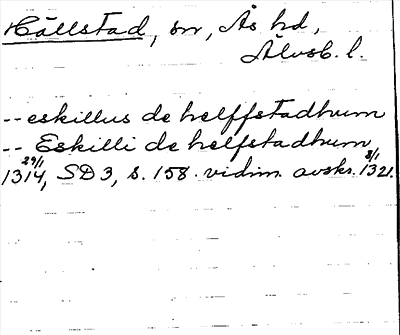 Hällstad, sn, Ås hd,
Älvsb. l.
-- eskillus de helffstadhum
-- Eskilli de helfstadhum
29/1 1314, SD 3, s. 158. vidim. avskr. 3/1 1321.